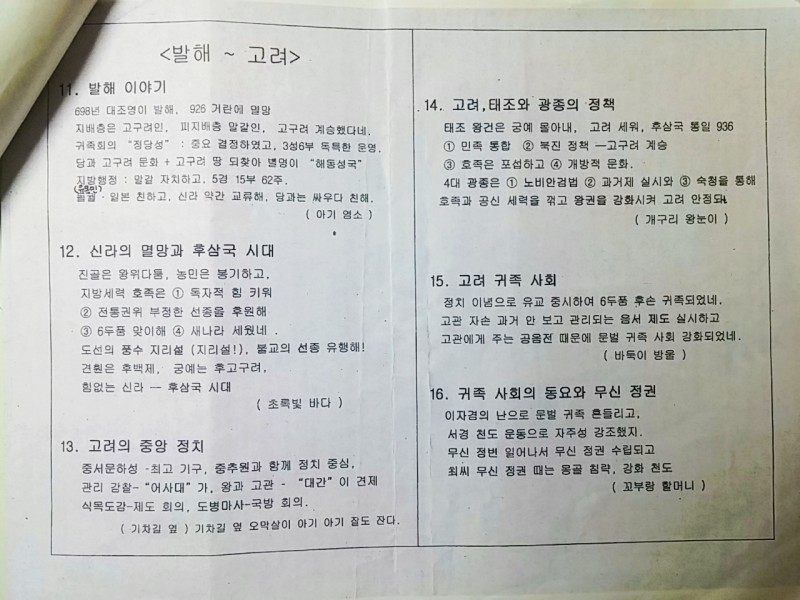 <발해 ~ 고려>
11. 발해 이야기
698년 대조영이 발해, 926 거란에 멸망
지배층은 고구려인, 피지배층 말갈인, 고구려 계승했다네.
귀족회의 "정당성" : 중요 결정하였고, 3성6부 독특한 운영.
당과 고구려 문화 + 고구려 땅 되찾아 별명이 "해동성국"
지방행정 : 말갈 자치하고, 5경 15부 62주.
· 일본 친하고, 신라 약간 교류해, 당과는 싸우다 친해.
( 아기 염소 )
12. 신라의 멸망과 후삼국 시대
진골은 왕위다툼, 농민은 봉기하고,
지방세력 호족은 ① 독자적 힘 키워
② 전통권위 부정한 선종을 후원해
③ 6두품 맞이해 ④ 새나라 세웠네 .
도선의 풍수 지리설 (지리설!), 불교의 선종 유행해!
견훤은 후백제, 궁예는 후고구려,
힘없는 신라 -- 후삼국 시대
( 초록빛 바다 )
13. 고려의 중앙 정치
중서문하성 -최고 기구, 중추원과 함께 정치 중심,
관리 감찰-"어사대"가, 왕과 고관 - "대간"이 견제
식목도감-제도 회의, 도병마사-국방 회의.
( 기차길 옆 ) 기차길 옆 오막살이 아기 아기 잘도 잔다.
14. 고려,태조와 광종의 정책
태조 왕건은 궁예 몰아내, 고려 세워, 후삼국 통일 936
① 민족 통합 ② 북진 정책 —고구려 계승
③ 호족은 포섭하고 ④ 개방적 문화.
4대 광종은 ① 노비안검법 ② 과거제 실시와 ③ 숙청을 통해
호족과 공신 세력을 꺾고 왕권을 강화시켜 고려 안정돼
( 개구리 왕눈이 )
15. 고려 귀족 사회
정치 이념으로 유교 중시하여 6두품 후손 귀족되었네.
고관 자손 과거 안 보고 관리되는 음서 제도 실시하고
고관에게 주는 공음전 때문에 문벌 귀족 사회 강화되었네.
( 바둑이 방울 )
16. 귀족 사회의 동요와 무신 정권
이자겸의 난으로 문벌 귀족 흔들리고,
서경 천도 운동으로 자주성 강조했지.
무신 정변 일어나서 무신 정권 수립되고
최씨 무신 정권 때는 몽골 침략, 강화 천도
( 꼬부랑 할머니 )